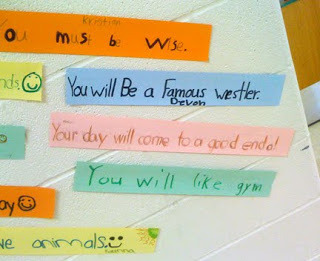 Kristian
You must be wise.
nds
You will Be a Famous westler.
Devon
Your day will come to a good endo!
You will like gym
ay
ve animals.